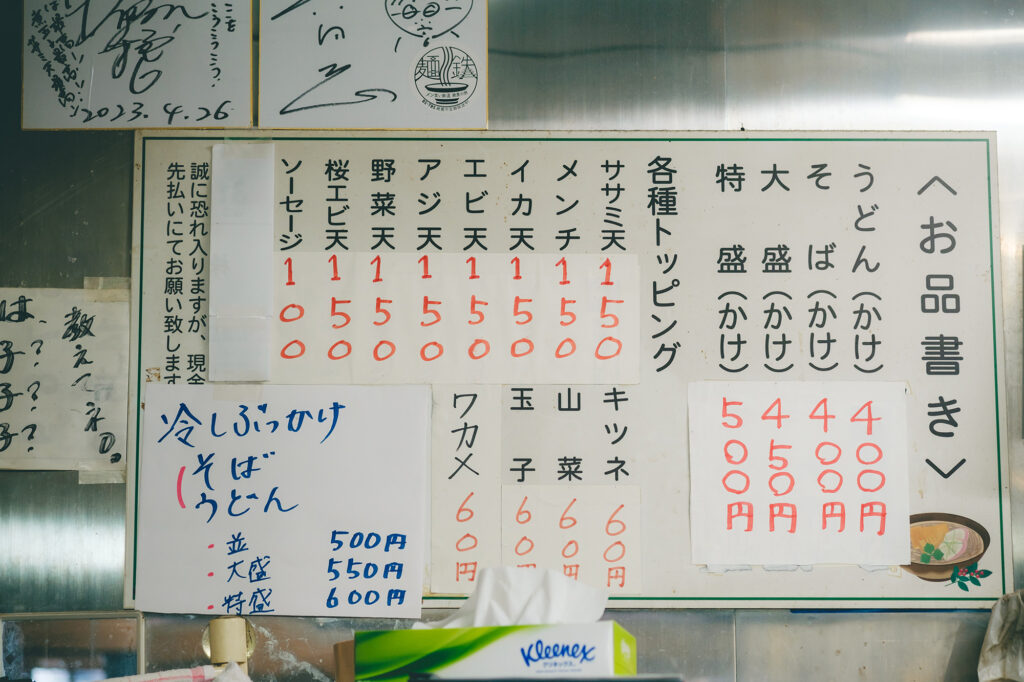 〈お品書き〉
うどん(かけ) 400円
そば(かけ) 400円
大盛(かけ) 450円
特盛(かけ) 500円
各種トッピング
ササミ天 150
メンチ 150
イカ天 150
エビ天 150
アジ天 150
野菜天 150
桜エビ天 150
ソーセージ 100
キツネ 60円
山菜 60円
玉子 60円
ワカメ 60円
誠に恐れ入りますが、現金
先払いにてお願い致します
冷しぶっかけ
そば
うどん
・並 500円
・大盛 550円
・特盛 600円
2023.4.26
麺鉄
教えてネ
は、
子?
子?
子?
Kleenex
クリネックス